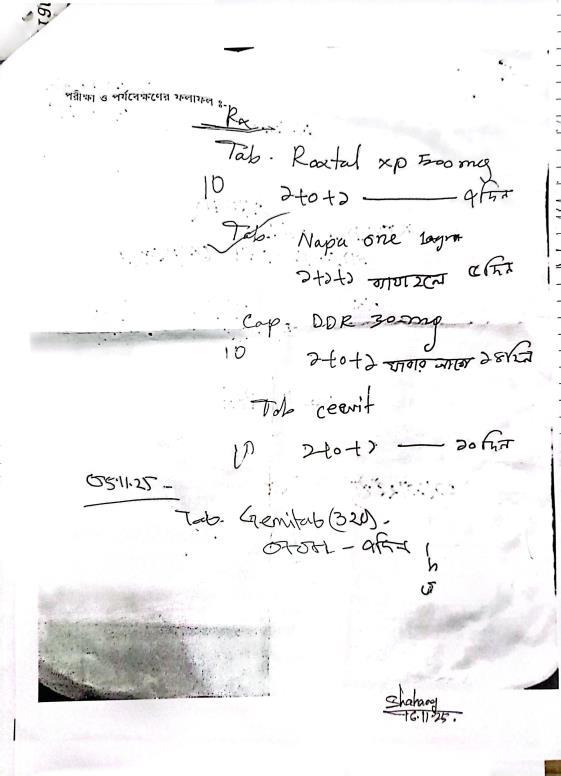 পরীক্ষা ও পর্যবেক্ষণের ফলাফল ঃ-
Rx
Tab. Roxtal xp 500 mg
10
১+০+১ ——— ৭ দিন
Tab. Napa one 1 gm
১+১+১ ব্যথা হলে ৫ দিন
Cap. DDR 30 mg
10
১+০+১ খাবার আগে ১৪ দিন
Tab ceevit
১+০+১ —— ১০ দিন
05.11.25 -
Tab. Gemitab (320).
- ৭ দিন
16.11.25.